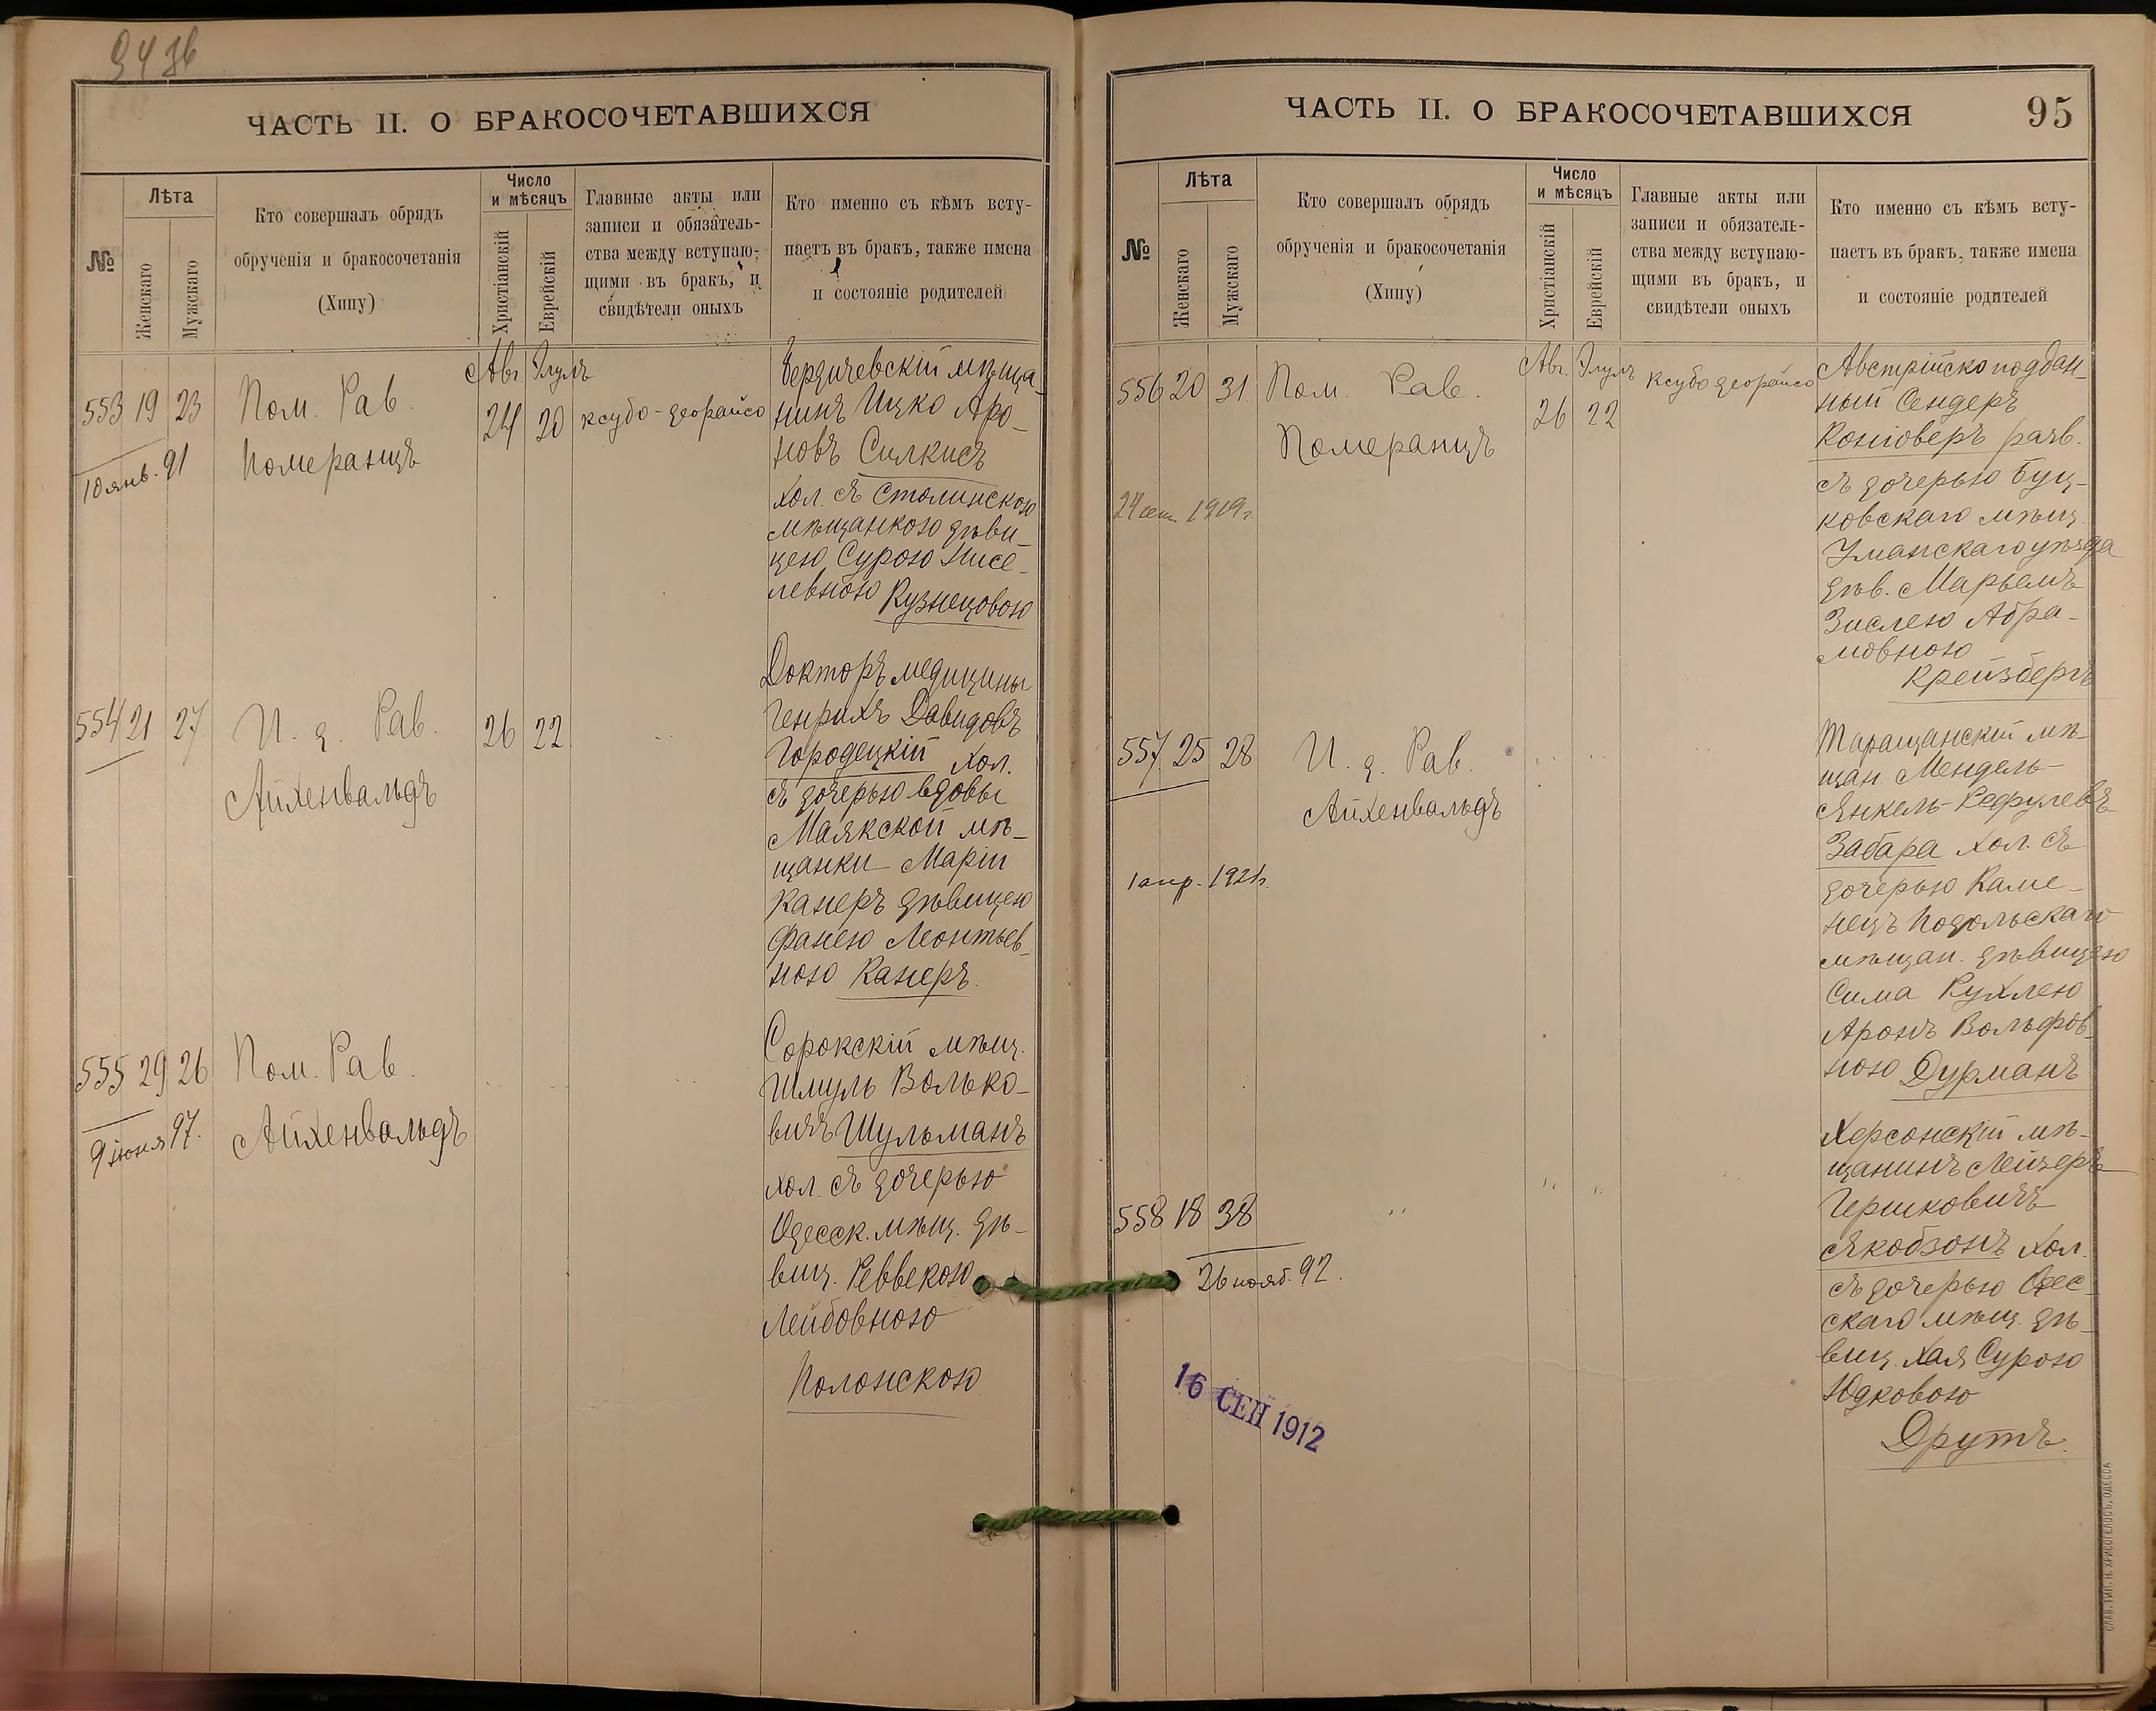 ЧАСТЬ II. О БРАКОСОЧЕТАВШИХСЯ
№
Лѣта
Женскаго
Мужскаго
Кто совершалъ обрядъ
обрученія и бракосочетанія
(Хипу)
Число
и мѣсяцъ
Христіанскій
Еврейскій
Главные акты или
записи и обязатель-
ства между вступаю-
щими въ бракъ, и
свидѣтели оныхъ
Кто именно съ кѣмъ всту-
паетъ въ бракъ, также имена
и состояніе родителей
553 19 23
10 янв. 91
Пом. Рав.
Померанцъ
Авг. Элулъ
24 20
ксубо-деорайсо
Бердичевскій мѣща-
нинъ Ицко Аро-
новъ Силкисъ
хол. съ Столинскою
мѣщанкою дѣви-
цею Сурою Нисе-
левною Кузнецовою
554 21 27
И. д. Рав.
Айхенвальдъ
26 22
Докторъ медицины
Генрихъ Давидовъ
Городецкій хол.
съ дочерью вдовы
Маякской мѣ-
щанки Маріи
Канеръ дѣвицею
Фанею Леонтьев-
ною Канеръ.
555 29 26
9 іюня 97.
Пом. Рав.
Айхенвальдъ
Сорокскій мѣщ.
Шмуль Волько-
вичъ Шульманъ
хол. съ дочерью
Одесск. мѣщ. дѣ-
виц. Реввекою
Лейбовною
Полонскою
ЧАСТЬ II. О БРАКОСОЧЕТАВШИХСЯ
95
№
Лѣта
Женскаго
Мужскаго
Кто совершалъ обрядъ
обрученія и бракосочетанія
(Хипу)
Число
и мѣсяцъ
Христіанскій
Еврейскій
Главные акты или
записи и обязатель-
ства между вступаю-
щими въ бракъ, и
свидѣтели оныхъ
Кто именно съ кѣмъ всту-
паетъ въ бракъ, также имена
и состояніе родителей
556 20 31
24 сен. 1919 г.
Пом. Рав.
Померанцъ
Авг. Элулъ
26 22
ксубо деорайсо
Австрійско поддан-
ный Сендеръ
разв.
съ дочерью Буц-
ковскаго мѣщ.
Уманскаго уѣзда
дѣв. Марьемъ
Зислею Абра-
мовною
Крейзбергъ
557 25 28
1 апр. 1921 г.
И. д. Рав.
Айхенвальдъ
Таращанскій мѣ-
щан. Мендель-
Янкель Рефулевъ
Забара хол. съ
дочерью Каме-
нецъ Подольскаго
мѣщан. дѣвицею
Сима Рухлею
Аронъ Вольфов-
ною Дурманъ
558 18 38
26 нояб. 92.
Херсонскій мѣ-
щанинъ Лейзеръ
Гершковичъ
Якобзонъ хол.
съ дочерью Одес-
скаго мѣщ. дѣ-
виц. Хая Сурою
Юдковою
Друтъ.
16 СЕН 1912
СЛАВ. ТИП. Н. ХРИСОГЕЛОСЪ, ОДЕССА